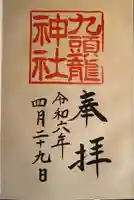 奉拝
九頭龍
神社
令和六年
四月二十九日